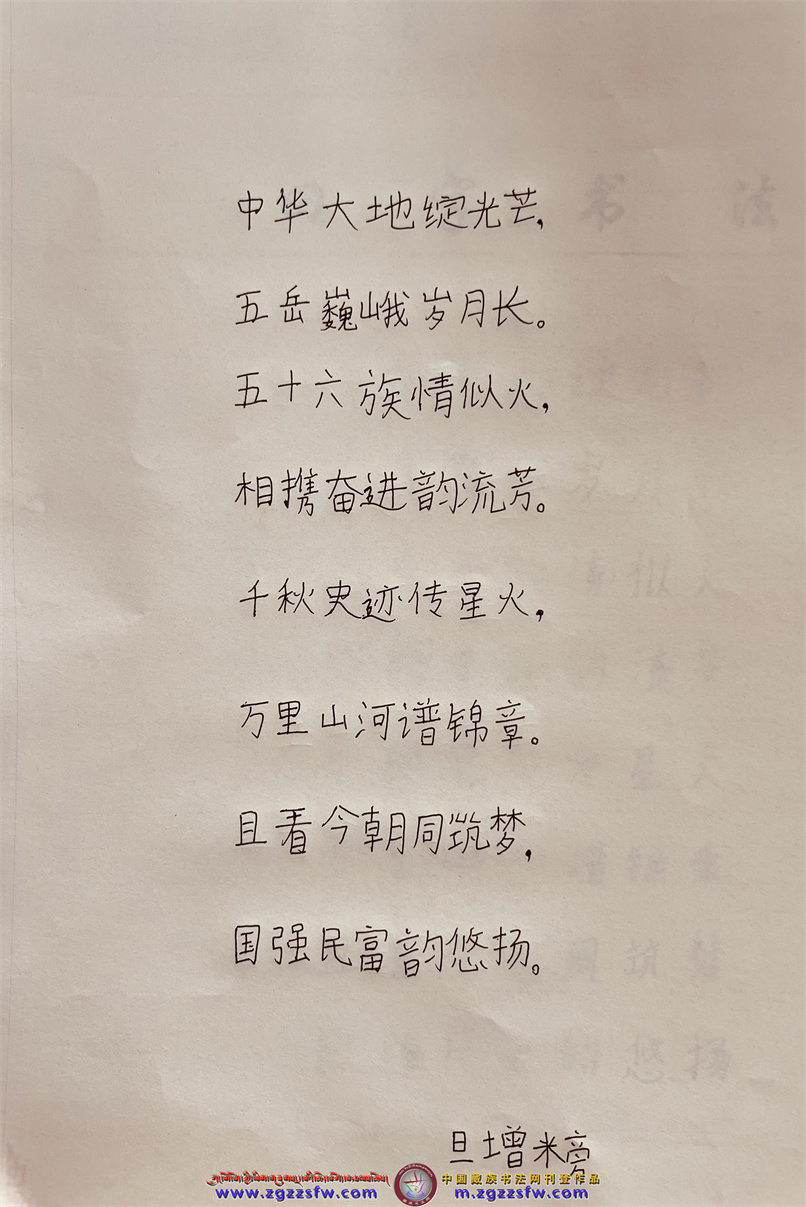 中华大地绽光芒，
五岳巍峨岁月长。
五十六族情似火，
相携奋进韵流芳。
千秋史迹传星火，
万里山河谱锦章。
且看今朝同筑梦，
国强民富韵悠扬。
旦增米
中国藏族书法网刊登作品
www.zgzzsfw.com
m.zgzzsfw.com